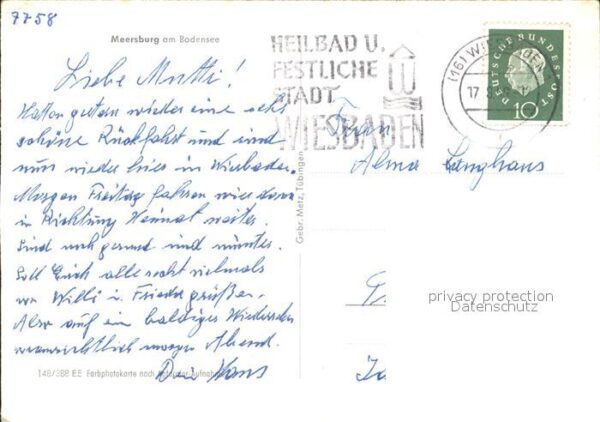 7758
Meersburg am Bodensee
Liebe Mutti!
Hatten gestern wieder eine sehr
schöne Rückfahrt und sind
nun wieder hier in Wiesbaden.
Morgen Freitag fahren wir dann
in Richtung Heimat weiter.
Sind noch gesund und munter.
Soll Euch alle recht vielmals
von Willi u. Frieda grüßen.
Also auf ein baldiges Wiedersehen
voraussichtlich morgen Abend.
Dein Hans
148/388 Farbphotokarte nach
Gebr. Metz, Tübingen
HEILBAD U.
FESTLICHE
STADT
WIESBADEN
(16) WIESBADEN
17
DEUTSCHE BUNDESPOST
10
Frau
Alma Langhans
privacy protection
Datenschutz